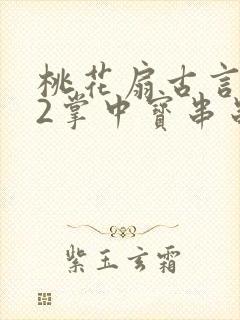 桃花扇古言
2掌中寳串
紫玉玄霜